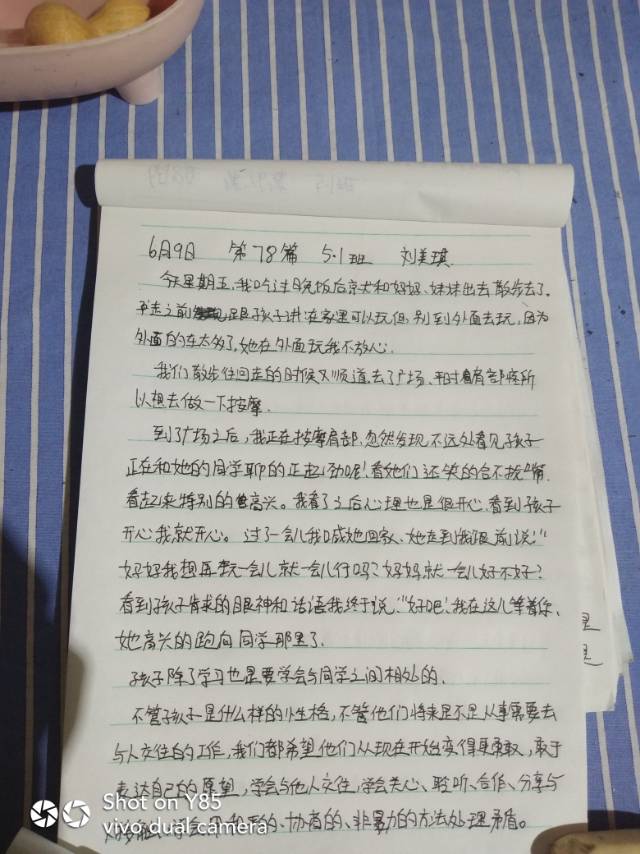 6月9日 第78篇 5.1班 刘美琪
今天星期五,我吃过晚饭后就和妈妈、妹妹出去散步去了。
走之前跟孩子讲:在家里可以玩但别到外面去玩,因为
外面的车太多了,她在外面玩我不放心.
我们散步往回走的时候又顺道去了广场、平时肩部疼所
以想去做一下按摩.
到了广场之后,我正在按摩肩部.忽然发现不远处看见孩子
正在和她的同学聊的正起劲呢!看她们还笑的合不拢嘴.
看起来特别的高兴。我看了之后心理也是很开心.看到孩子
开心我就开心。过了一会儿我喊她回家、她走到我跟前说:"
妈妈我想再玩一会儿就一会儿行吗?妈妈就一会儿好不好?
看到孩子肯求的眼神和话语我终于说:"好吧!我在这儿等着你、
她高兴的跑向同学那里了.
孩子除了学习也是要学会与同学之间相处的.
不管孩子是什么样的性格,不管他们将来是不是从事需要去
与人交往的工作,我们都希望他们从现在开始变得更勇敢,敢于
表达自己的愿望,学会与他人交往,学会关心、聆听、合作、分享与
学会用和平的、协商的、非暴力的方法处理矛盾。
Shot on Y85
vivo dual camera